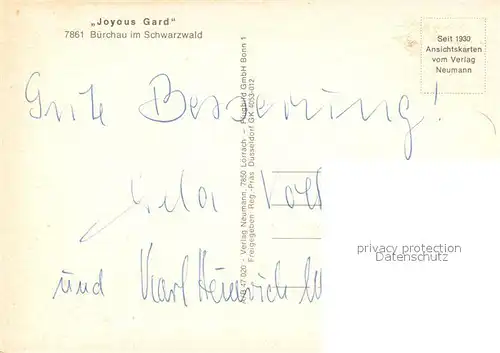 „Joyous Gard"
7861 Bürchau im Schwarzwald
Seit 1930
Ansichtskarten
vom Verlag
Neumann
Gute Besserung!
und Karl Heinrich
Verlag Neumann, 7850 Lörrach – Flugbild GmbH Bonn 1
Freigegeben Reg.-Präs Düsseldorf
privacy protection
Datenschutz